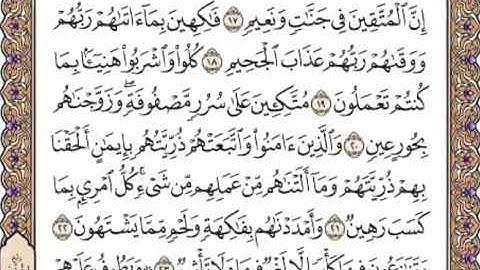 إِنَّ ٱلْمُتَّقِينَ فِى جَنَّٰتٍ وَنَعِيمٍ ١٧ فَٰكِهِينَ بِمَآ ءَاتَىٰهُمْ رَبُّهُمْ
وَوَقَىٰهُمْ رَبُّهُمْ عَذَابَ ٱلْجَحِيمِ ١٨ كُلُوا۟ وَٱشْرَبُوا۟ هَنِيٓـًٔۢا بِمَا
كُنتُمْ تَعْمَلُونَ ١٩ مُتَّكِـِٔينَ عَلَىٰ سُرُرٍ مَّصْفُوفَةٍ ۖ وَزَوَّجْنَٰهُم
بِحُورٍ عِينٍ ٢٠ وَٱلَّذِينَ ءَامَنُوا۟ وَٱتَّبَعَتْهُمْ ذُرِّيَّتُهُم بِإِيمَٰنٍ أَلْحَقْنَا
بِهِمْ ذُرِّيَّتَهُمْ وَمَآ أَلَتْنَٰهُم مِّنْ عَمَلِهِم مِّن شَىْءٍ ۚ كُلُّ ٱمْرِئٍۭ بِمَا
كَسَبَ رَهِينٌ ٢١ وَأَمْدَدْنَٰهُم بِفَٰكِهَةٍ وَلَحْمٍ مِّمَّا يَشْتَهُونَ ٢٢
يَتَنَٰزَعُونَ فِيهَا كَأْسًا لَّا لَغْوٌ فِيهَا وَلَا تَأْثِيمٌ ٢٣ وَيَطُوفُ عَلَيْهِمْ